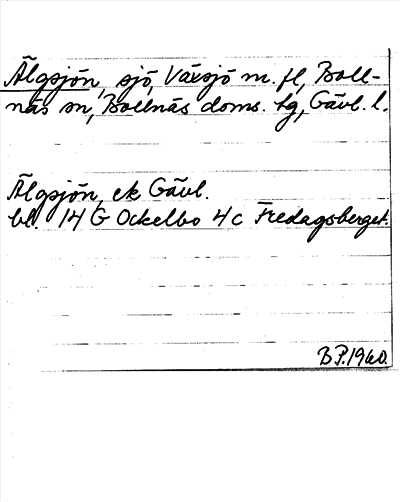 Älgsjön, sjö, Växsjö m. fl, Boll-
näs sn, Bollnäs doms. tg, Gävl. l.
Älgsjön ek Gävl.
bl. 14 G Ockelbo 4 c Fredagsberget.
B.P. 1960.